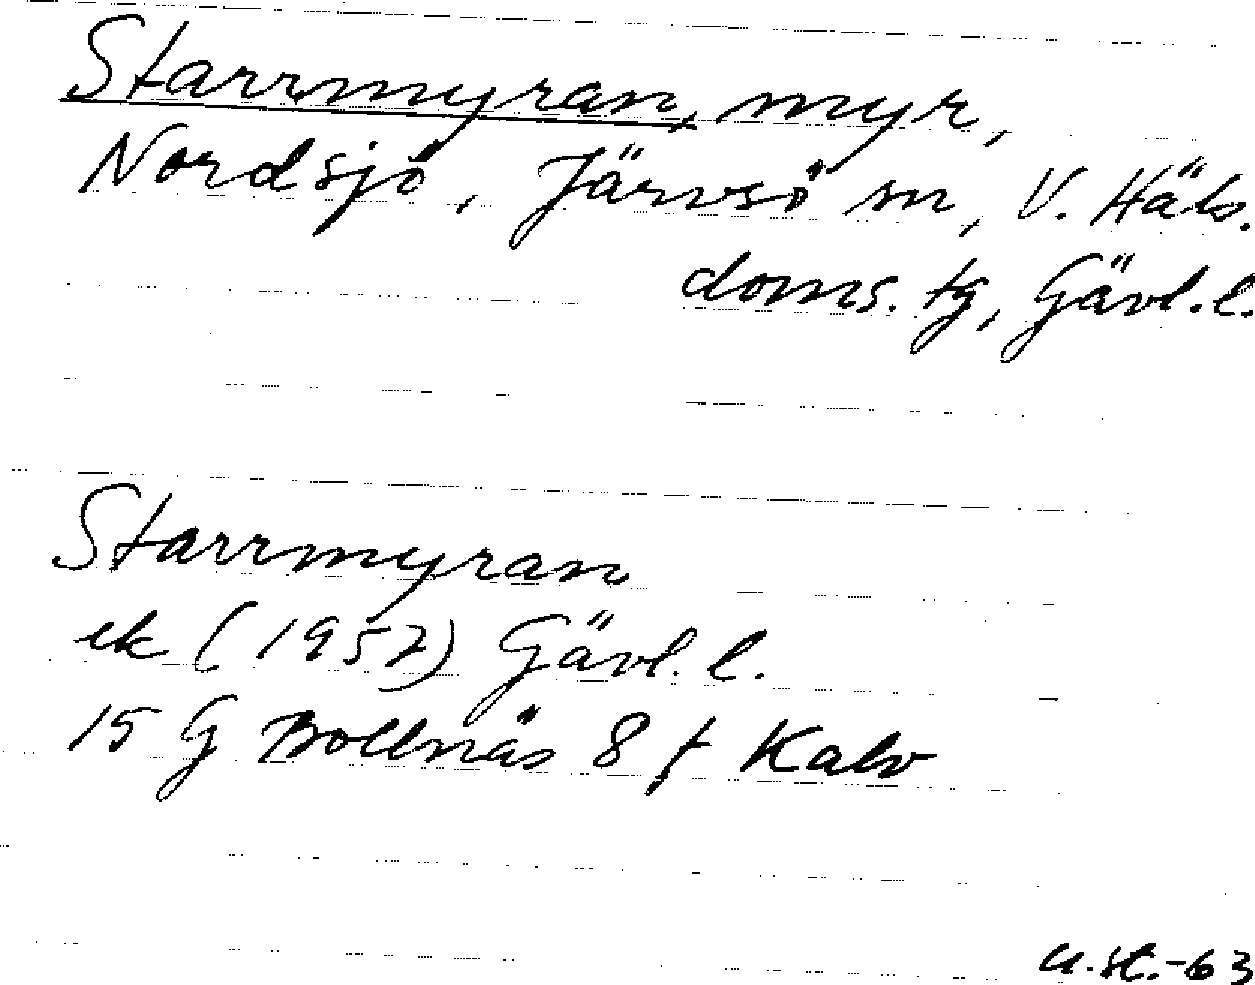 Starrmyran, myr,
Nordsjö, Järvsö sn, V. Häls.
doms. tg, Gävl. l.
Starrmyran
ek (1957) Gävl. l.
15 G Bollnäs 8 f Kalv
u.st.-63